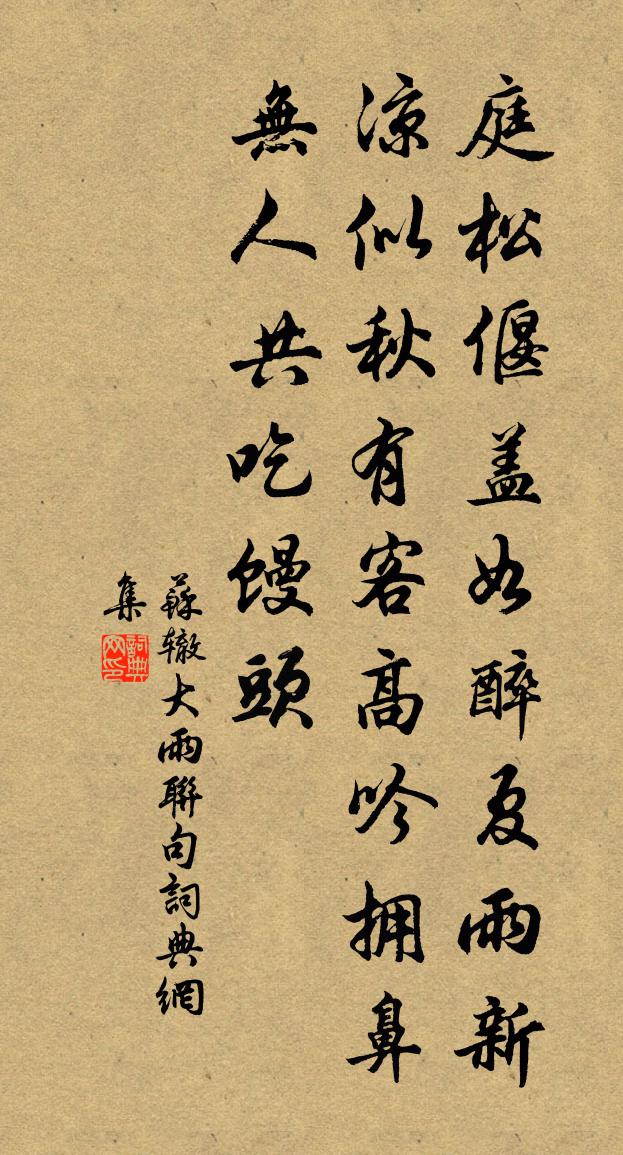 庭松偃盖如醉夏雨新
凉似秋有客高吟拥鼻
無人共吃馒頭
蘇辙大雨聯句詞典網
集
詞典网印